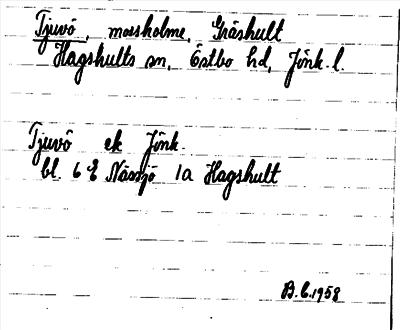 Tjuvö, mossholme, Gräshult
Hagshults sn, Östbo hd, Jönk. l.
Tjuvö ek Jönk.
bl. 6 E Nässjö 1a Hagshult
B.C. 1958